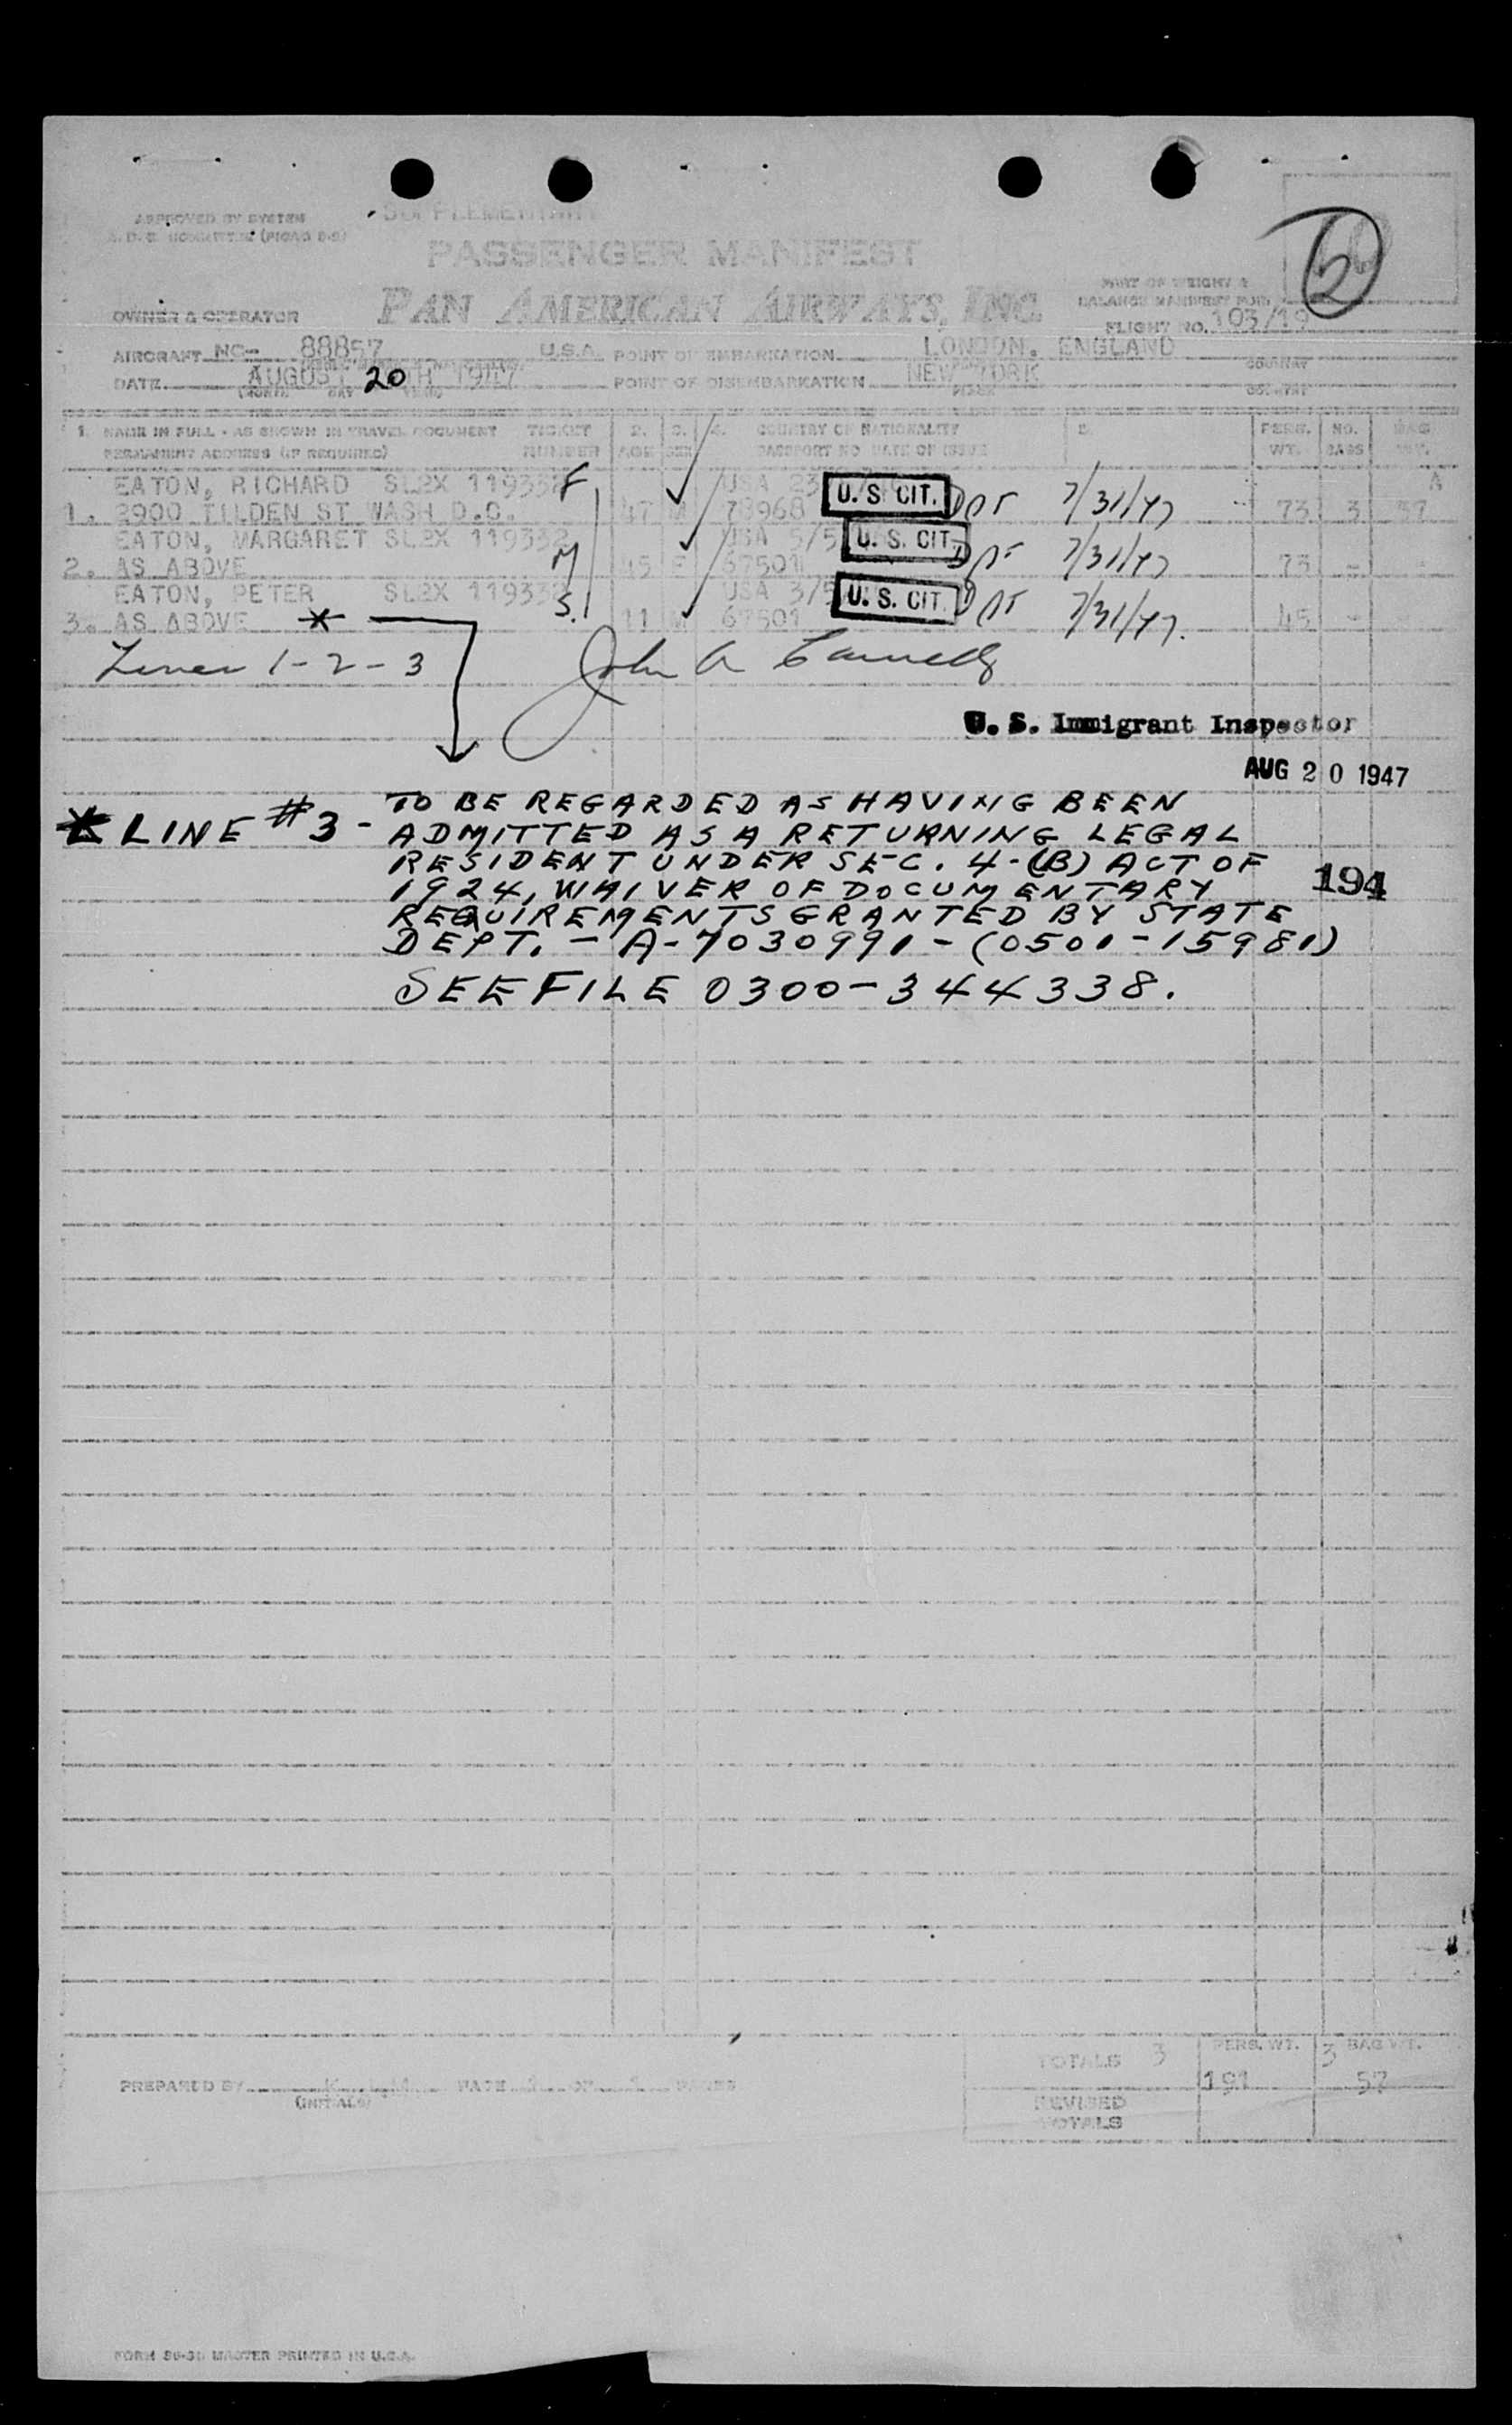 SUPPLEMENTARY
APPROVED BY SYSTEM
PASSENGER MANIFEST
PAN AMERICAN AIRWAYS, INC.
PART OF WEIGHT &
BALANCE MANIFEST FOR
OWNER & OPERATOR
FLIGHT NO. 103/19
AIRCRAFT NC- 88857 U.S.A. POINT OF EMBARKATION LONDON, ENGLAND COUNTRY
DATE AUGUST 20 TH 1947 POINT OF DISEMBARKATION NEW YORK
PLACE COUNTRY
1. NAME IN FULL - AS SHOWN IN TRAVEL DOCUMENT TICKET 2. 3. 4. COUNTRY OF NATIONALITY 5. PERS. NO. BAG
PERMANENT ADDRESS (IF REQUIRED) NUMBER AGE SEX PASSPORT NO DATE OF ISSUE WT. BAGS WT.
EATON, RICHARD SL2X 119332 F USA 23 A
1. 2900 TILDEN ST WASH D.C. 47 M 78968 U. S. CIT. 7/31/47 73 3 57
EATON, MARGARET SL2X 119332 USA 5/5
2. AS ABOVE M 45 F 67501 U. S. CIT. 7/31/47 73 - -
EATON, PETER SL2X 119332 USA 3/5
3. AS ABOVE * S. 11 M 67501 U. S. CIT. 7/31/47. 45 -
Lines 1-2-3 John A
U. S. Immigrant Inspector
AUG 20 1947
* LINE #3 - TO BE REGARDED AS HAVING BEEN
ADMITTED AS A RETURNING LEGAL
RESIDENT UNDER SEC. 4-(B) ACT OF
1924, WAIVER OF DOCUMENTARY
194
REQUIREMENTS GRANTED BY STATE
DEPT. - A-7030991 - (0501-15981)
SEE FILE 0300-344338.
TOTALS 3 PERS. WT. 3 BAG WT.
PREPARED BY
(INITIALS)
191 57
REVISED
TOTALS
MASTER PRINTED IN U.S.A.